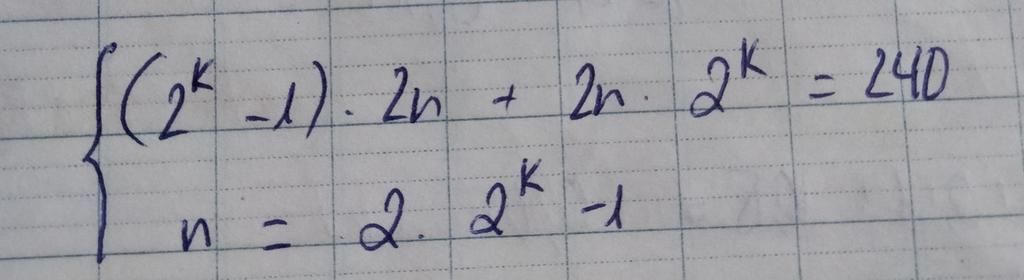 (2^k - 1) · 2n + 2n · 2^k = 240
n = 2 · 2^k - 1